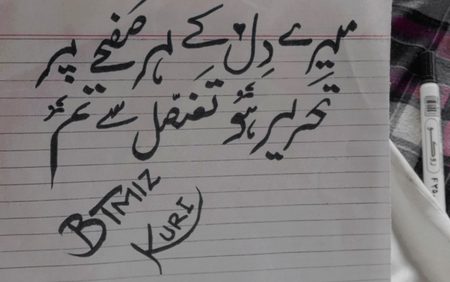 میرے دل کے ہر صفحے پر
تحریر ہو تفصل سے تم
BTMIZ
KURI